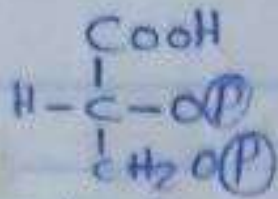 COOH
H-C-OⓅ
CH2OⓅ